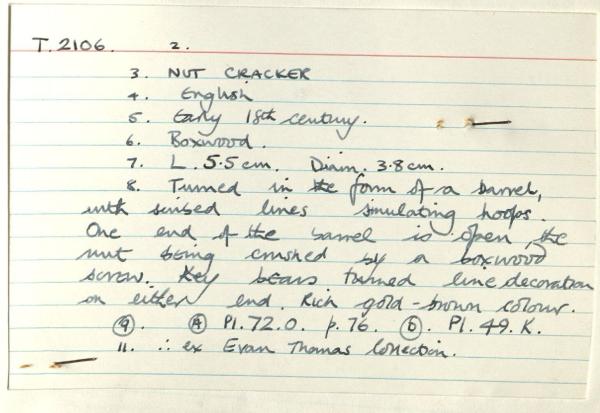 T.2106. 2.
3. NUT CRACKER
4. English
5. Early 18th century.
6. Boxwood.
7. L. 5.5 cm. Diam. 3.8 cm.
8. Turned in the form of a barrel,
with incised lines simulating hoops.
One end of the barrel is open, the
nut being crushed by a boxwood
screw. Key bears turned line decoration
on either end. Rich gold-brown colour.
9. A Pl. 72.O. p. 76. B. Pl. 49. K.
11. ∴ ex Evan Thomas Collection.